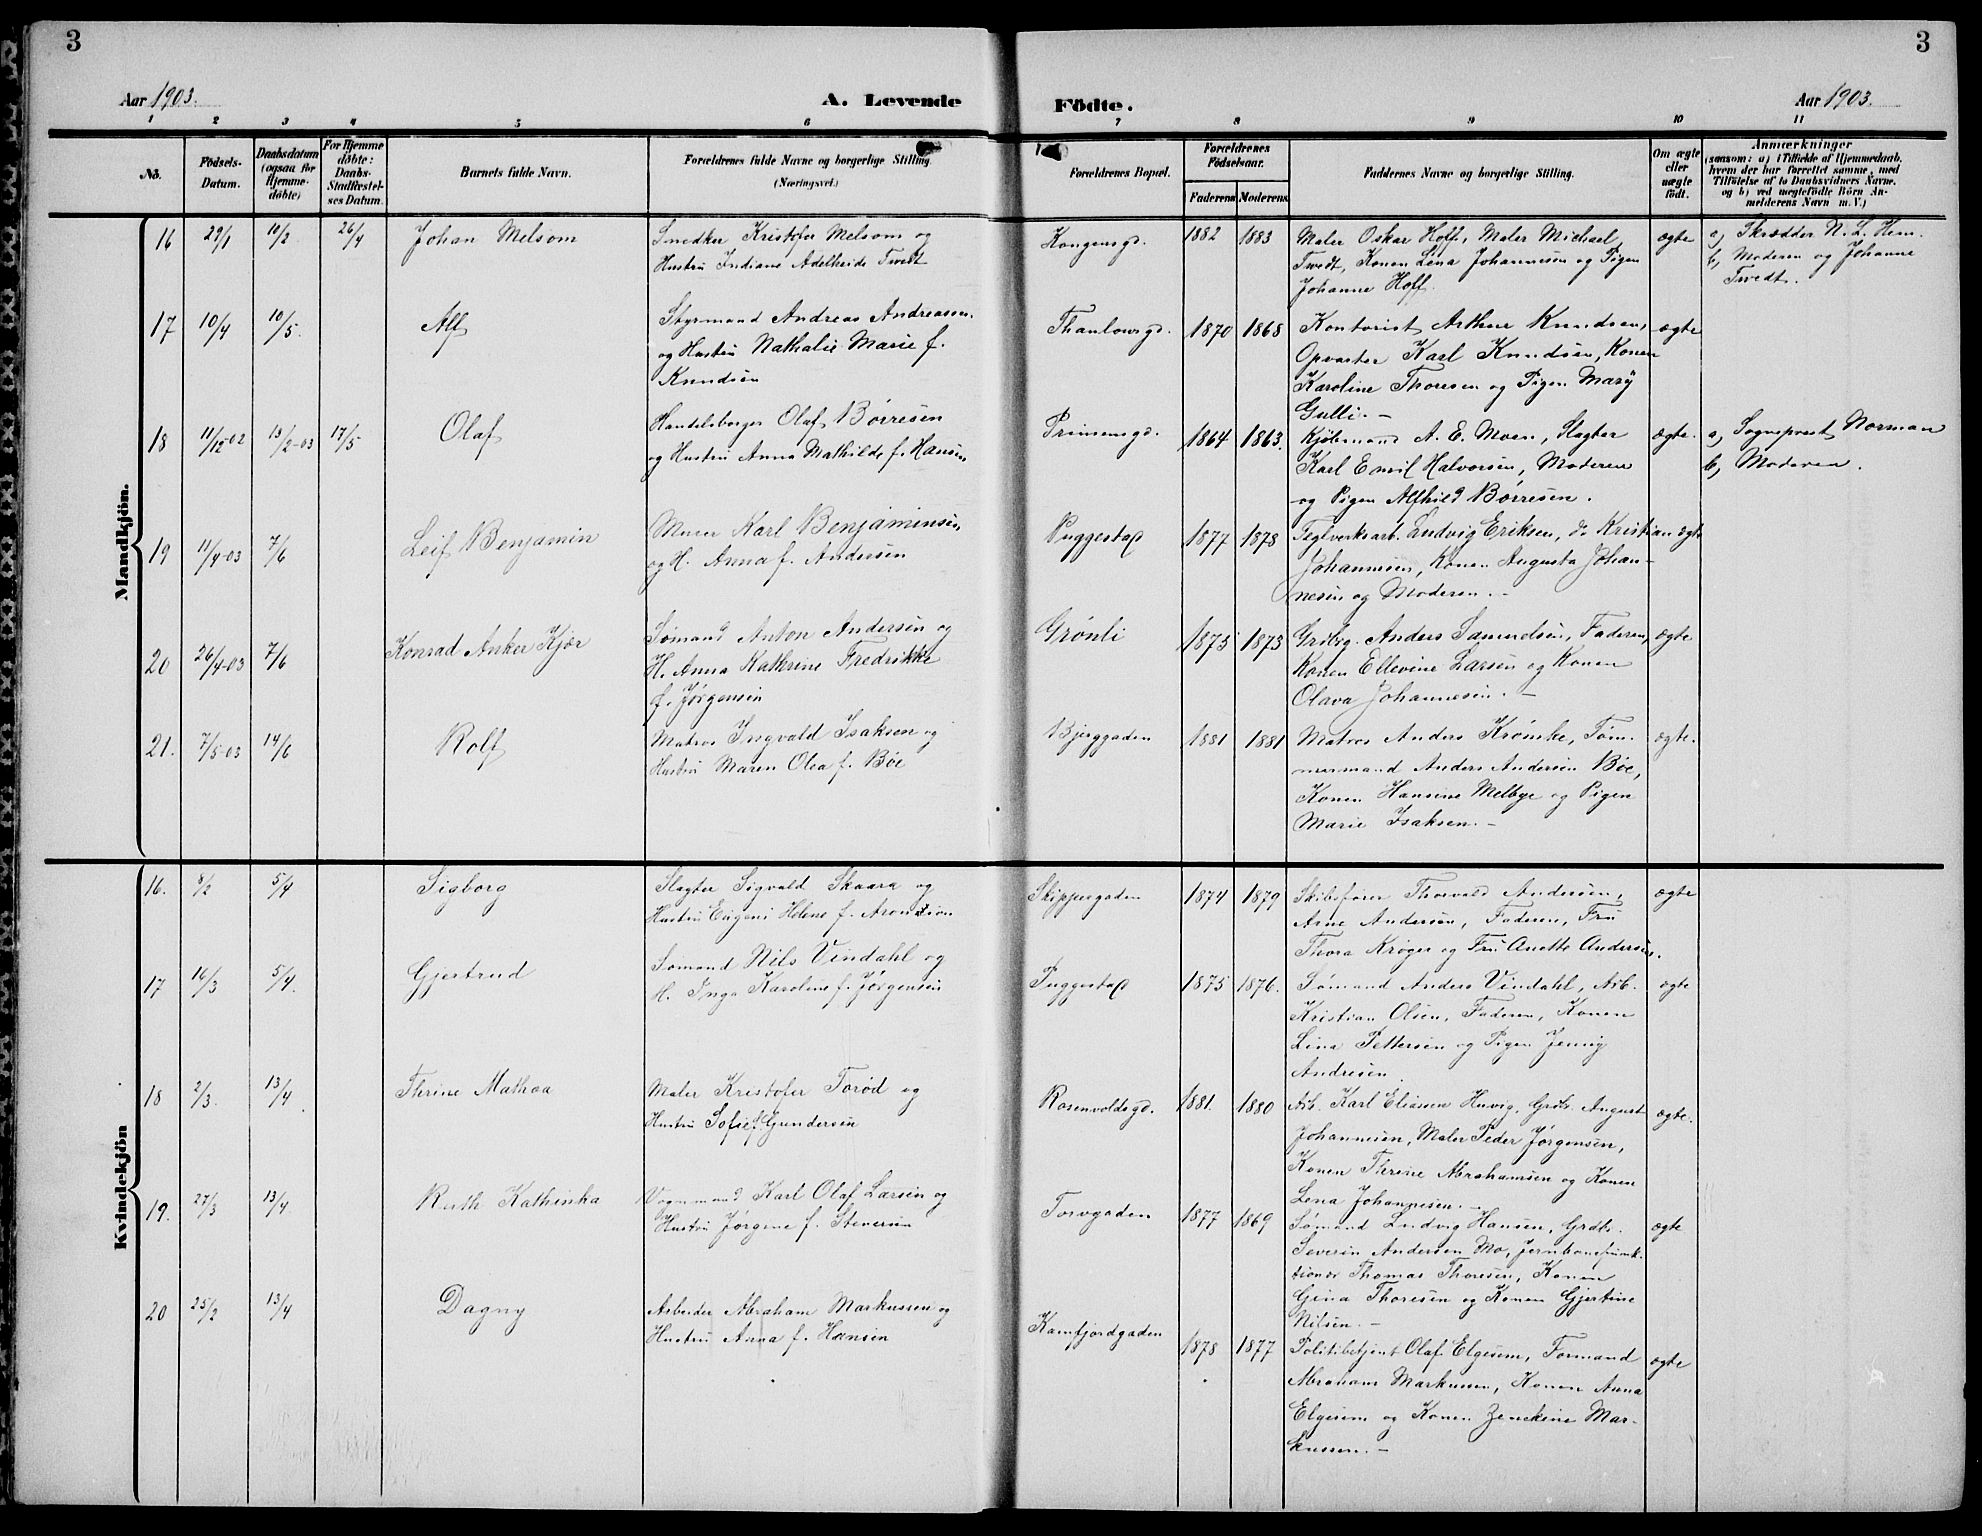 3
3
Aar 1903.
A. Levende
Födte.
Aar 1903.
1 2 3 4 5 6 7 8 9 10 11
No.
Födsels-
Datum.
Daabsdatum
(ogsaa for
Hjemme-
döbte)
For Hjemme
döbte:
Daabs-
Stadfæstel-
ses Datum.
Barnets fulde Navn.
Forældrenes fulde Navne og borgerlige Stilling
(Næringsvei.)
Forældrenes Bopæl.
Forældrenes
Födselsaar.
Faderens Moderens
Faddernes Navne og borgerlige Stilling.
Om ægte
eller
uægte
födt.
Anmærkninger
(saasom: a) i Tilfælde af Hjemmedaab,
hvem der har forrettet samme, med
Tilföielse af to Daabsvidners Navne.
og b) ved uægtefödte Börn An-
melderens Navn m. V.)
Mandkjön.
16 29/1 10/2 26/4 Johan Melsom
Smedker Kristofer Melsom og
Hustru Indiane Adelheide Tvedt
Kongensgd. 1882 1883
Maler Oskar Hoff, Maler Michael
Tvedt, Konen Lina Johannesen og Pigen
Johanne Hoff.
ægte
a, Skrædder N. L. Hem.
b, Moderen og Johanne
Tvedt.
17 10/4 10/5. Alf
Styrmand Andreas Andreassen
og Hustru Nathalie Marie f.
Knudsen
Thaulowsgd. 1870 1868
Kontorist Arthur Knudsen,
Opvarter Karl Knudsen, Konen
Karoline Thoresen og Pigen Mary
Gulli. -
ægte
18 11/12-02 13/2-03 17/5 Olaf
Handelsborger Olaf Børresen
og Hustru Anna Mathilde f. Hansen
Prinsensgd. 1864 1863.
Kjøbmand A. E. Moen, Slagter
Karl Emil Halvorsen, Moderen
og Pigen Alfhild Børresen.
ægte.
a, Sogneprest Norman
b, Moderen.
19 11/4-03 7/6 Leif Benjamin
Murer Karl Benjaminsen
og H. Anna f. Andersen
Puggestad 1877 1878
Teglverksarb. Ludvig Eriksen, do Kristian
Johannesen, Konen Augusta Johan-
nesen og Moderen. -
ægte
20 26/4-03 7/6 Konrad Anker Kjær
Sømand Anton Andersen og
H. Anna Kathrine Fredrikke
f. Jørgensen
Grønli 1875 1873
Grdbrg. Anders Samuelsen, Faderen,
Konen Ellevine Larsen og Konen
Olava Johannesen. -
ægte
21. 7/5-03 14/6 Rolf
Matros Ingvald Isaksen og
Hustru Maren Olea f. Bøe
Bjerggaden 1881 1881
Matros Anders Krømke, Tøm-
mermand Anders Andersen Bøe,
Konen Hansine Melbye og Pigen
Marie Isaksen. -
ægte.
Kvindekjön
16. 8/2 5/4 Sigborg
Slagter Sigvald Skaara og
Hustru Eugeni Helene f. Arontzon
Skippergaden 1874 1879
Skibsfører Thorvald Andersen,
Arne Andersen, Faderen, Fru
Thora Krøger og Fru Anette Andersen.
ægte
17 16/3 5/4. Gjertrud
Sømand Nils Vindahl og
H. Inga Karoline f. Jørgensen
Puggestad 1875 1876.
Sømand Anders Vindahl, Arb.
Kristian Olsen, Faderen, Konen
Lina Pettersen og Pigen Jenny
Andresen
ægte
18 2/3. 13/4 Thrine Mathea
Maler Kristofer Torød og
Hustru Sofie f. Gundersen
Rosenvoldsgd. 1881. 1880
Arb. Karl Eliasen Huvig, Grdb. August
Johannesen, Maler Peder Jørgensen,
Konen Threne Abrahamsen og Konen
Lena Johannesen. -
ægte.
19. 27/3 13/4 Ruth Kathinka
Vognmand Karl Olaf Larsen og
Hustru Jørgine f. Iversen
Torvgaden 1877 1869
Sømand Ludvig Hansen, Grdb.
Severin Andersen Mo, Jernbanefunk-
tionær Thomas Thoresen, Konen
Gina Thoresen og Konen Gjertine
Nilsen. -
ægte
20 25/2 13/4 Dagny
Arbeider Abraham Markussen og
Hustru Anna f. Hansen
Kamfjordgaden 1878 1877
Politibetjent Olaf Elgesem, Formand
Abraham Markussen, Konen Anna
Elgesem og Konen Zenekine Mar-
kussen. -
ægte